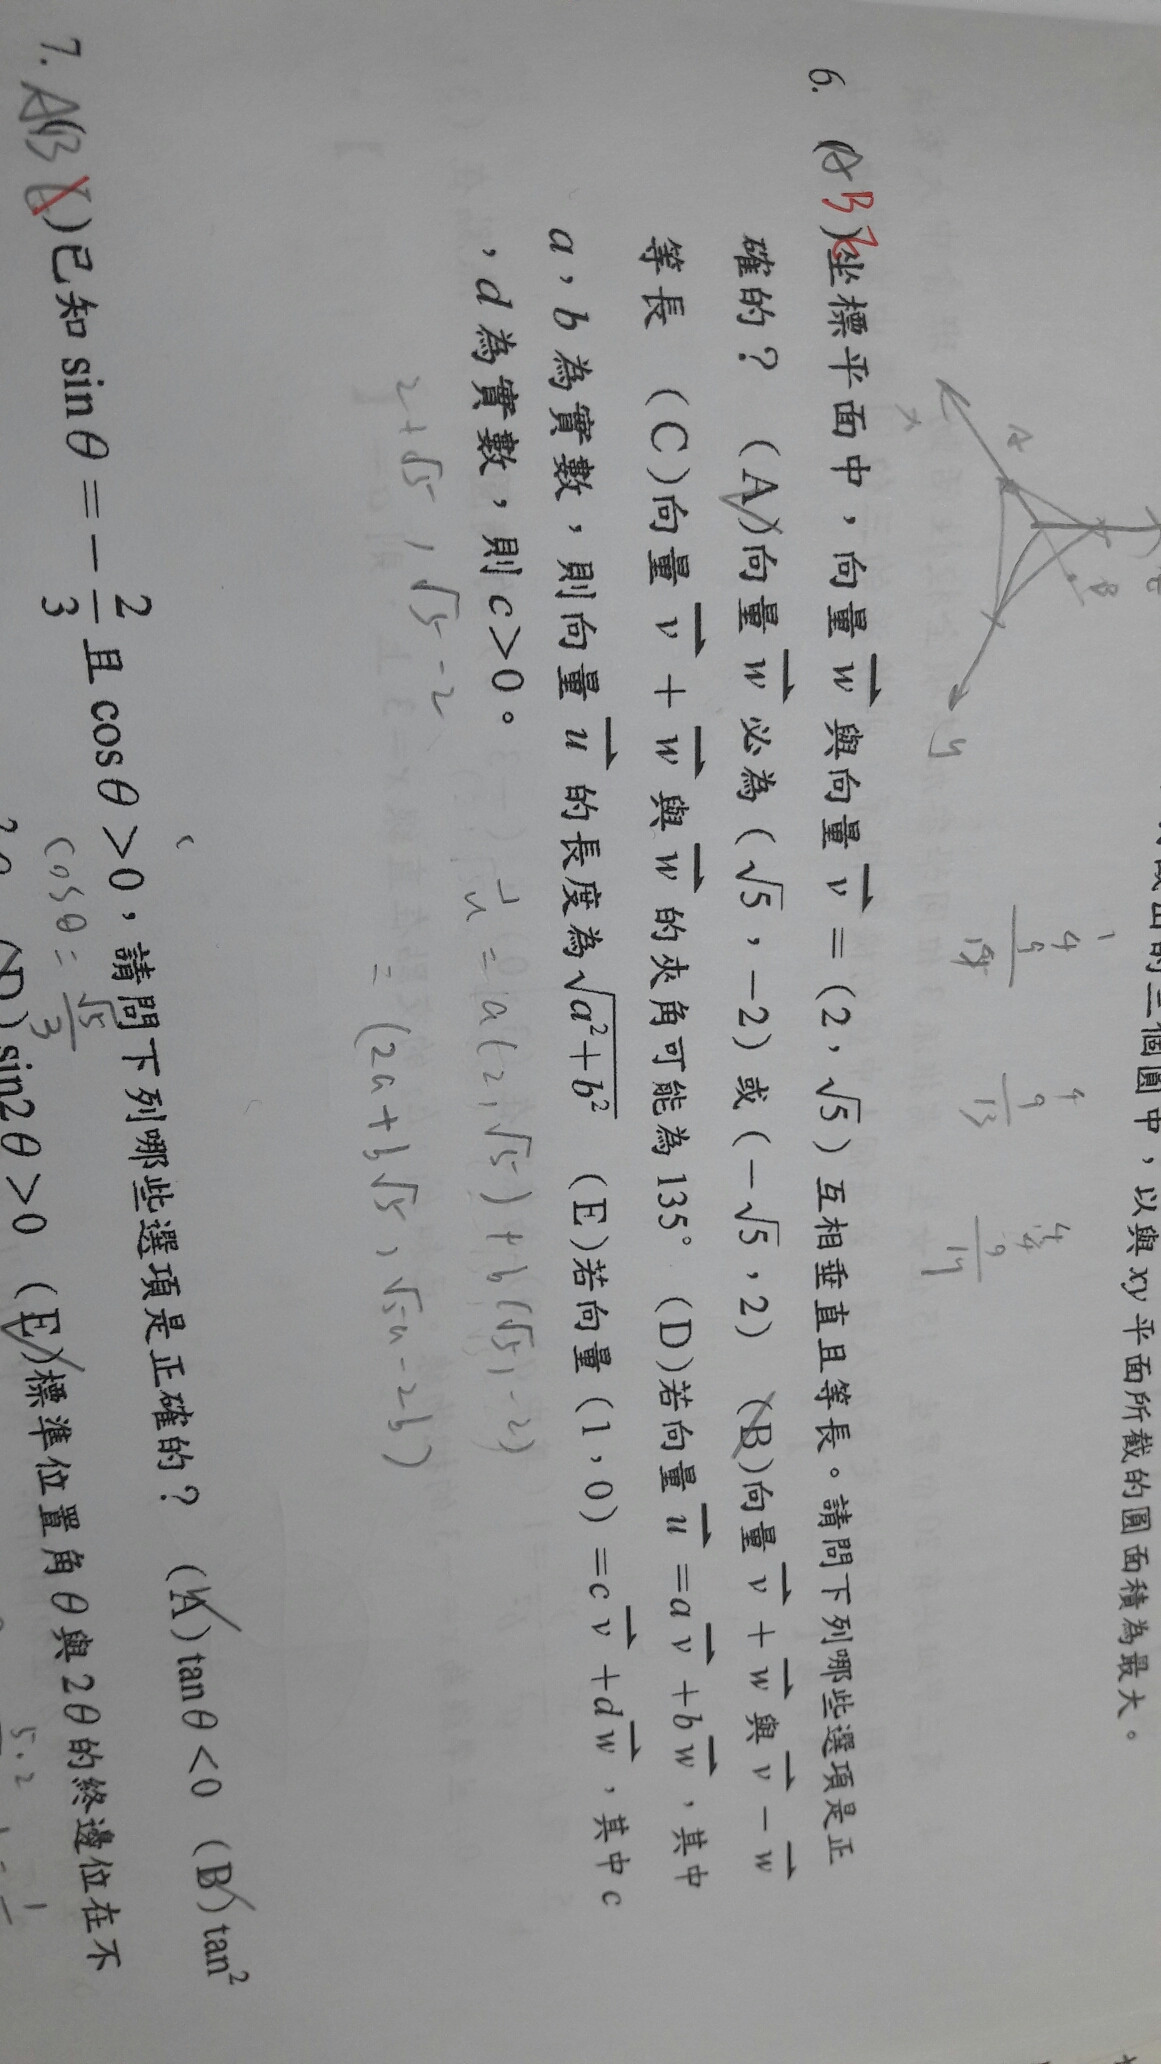 截出的三個圓中，以與xy平面所截的圓面積為最大。
x
A
B
y
4 5
4 9 13
4 9 17
6. (A B E)坐標平面中，向量w與向量v=(2，√5)互相垂直且等長。請問下列哪些選項是正
確的？ (A)向量w必為(√5，-2)或(-√5，2) (B)向量v+w與v-w
等長 (C)向量v+w與w的夾角可能為135° (D)若向量u=av+bw，其中
a，b為實數，則向量u的長度為√a²+b² (E)若向量(1，0)=cv+dw，其中c
，d為實數，則c>0。
u = a(2,√5)+b(√5,-2)
2+√5, √5-2
= (2a+b√5, √5a-2b)
7. AB )已知sinθ=-2/3且cosθ>0，請問下列哪些選項是正確的？ (A)tanθ<0 (B)tan²
cosθ= √5/3
(D)sin2θ>0 (E)標準位置角θ與2θ的終邊位在不
5.2